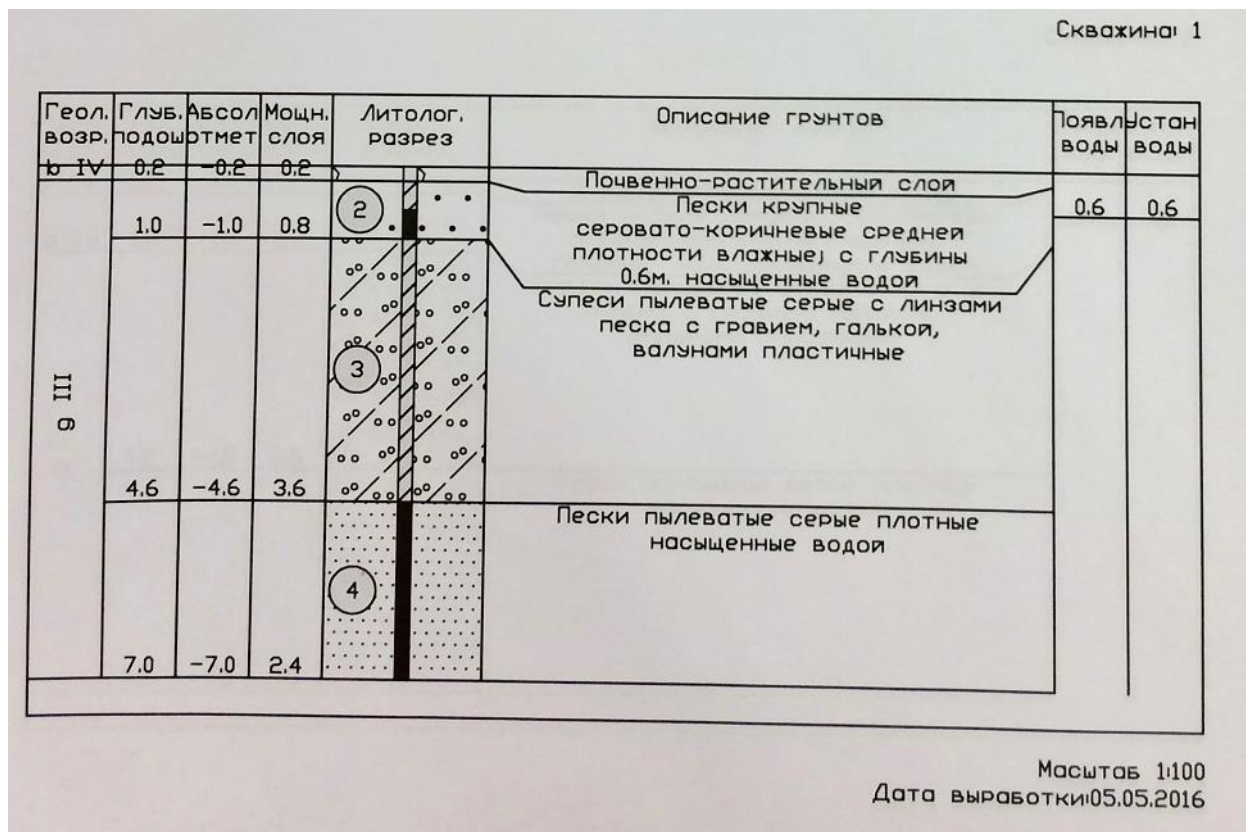 Скважина: 1
Геол. возр.
Глуб. подош
Абсол отмет
Мощн. слоя
Литолог. разрез
Описание грунтов
Появл воды
Устан воды
b IV 0.2 -0.2 0.2
Почвенно-растительный слой
2
1.0 -1.0 0.8
Пески крупные
серовато-коричневые средней
плотности влажные; с глубины
0.6м. насыщенные водой
0.6 0.6
Супеси пылеватые серые с линзами
песка с гравием, галькой,
валунами пластичные
3
g III
4.6 -4.6 3.6
Пески пылеватые серые плотные
насыщенные водой
4
7.0 -7.0 2.4
Масштаб 1:100
Дата выработки:05.05.2016